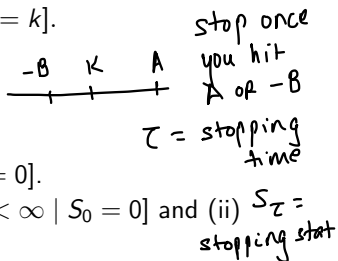 = k].
stop once
you hit
A or -B
-B K A
τ = stopping
time
= 0].
< ∞ | S₀ = 0] and (ii) S_τ =
stopping stat